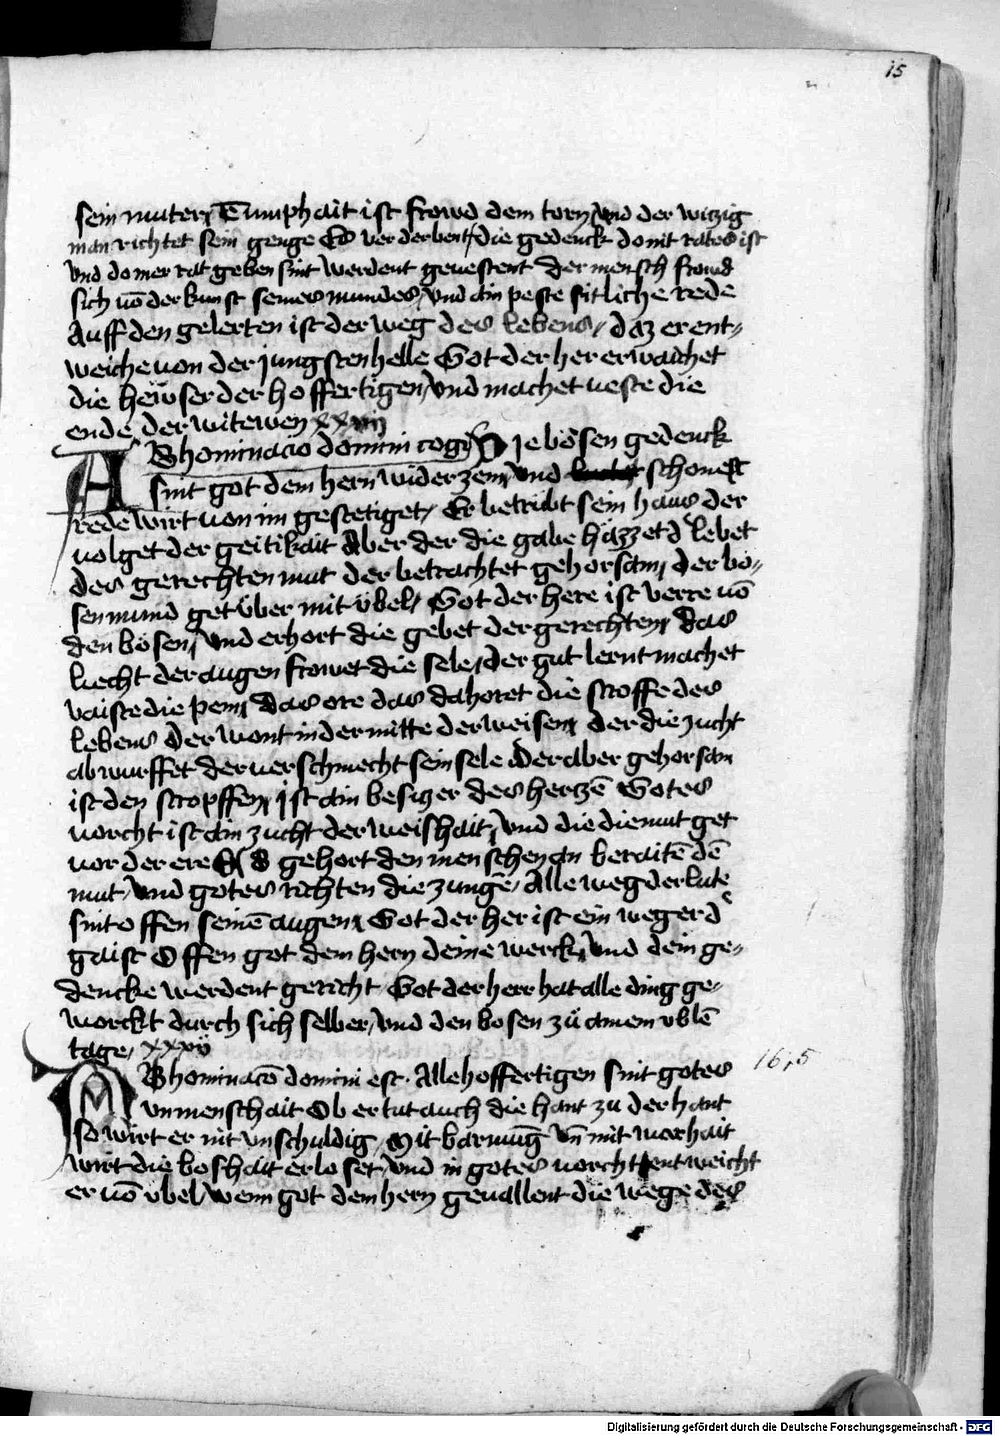 15
sein muter, Tumphait ist frowd dem torn, vnd der witzig
man richtet sein genge Es verderbent, die gedenck do nit rates ist
vnd do mer rat geben sint werdent geuestent Der mensch frowd
sich uō der kunst seines mundes, vnd ain peste sitliche rede
Auff den gelerten ist der weg des lebens, daz er ent=
weiche von der jungsten helle Got der her erwaichet
die hewser der hoffertigen, vnd machet ueste die
ende der witewen
Abhominacio domini cogi Die bösen gedenck
sint got dem hern widerzem, vnd schonest
rede wirt von im gestetiget, Er betrübt sein haus der
volget der geitikait Aber der die gabe hazzet d lebet
des gerechten mut der betrachtet gehorsam, der bö=
sen mund get über mit übel, Got der here ist verre uō
den bösen, vnd erhort die gebet der gerechten, das
liecht der augen frowet die sele, der gut lernt machet
vaiste die pein, das ore das da horet die stroffe des
lebens der wont in der mitte der weisen, der die zucht
abwurffet der verschmecht sein sele Der aber gehorsam
ist den stropffen, ist ain besizer des hertzē Gotes
vorcht ist ain zucht der weishait, vnd die diemut get
vor der ere gehort den menschen an beraitē dē
mut, vnd gotes richten die zungē, Alle weg der lute
sint offen seinē augen, Got der her ist ein weger d
gaist Offen got dem hern deine werck, vnd dein ge=
dencke werdent gericht Got der herr hat alle ding ge=
worckt durch sich selber, vnd den bosen zü ainem vblē
tage, xxxv
Abhominacō domini est. Alle hoffertigen sint gotes
vnmenschait Ob er tut auch die hant zu der hant
so wirt er nit vnschuldig, Mit barmūg vn̄ mit warhait
wirt die boshait erloset, vnd in gotes vorcht entweicht
er uō vbel, wenn got dem hern geuallent die wege des
Digitalisierung gefördert durch die Deutsche Forschungsgemeinschaft - DFG